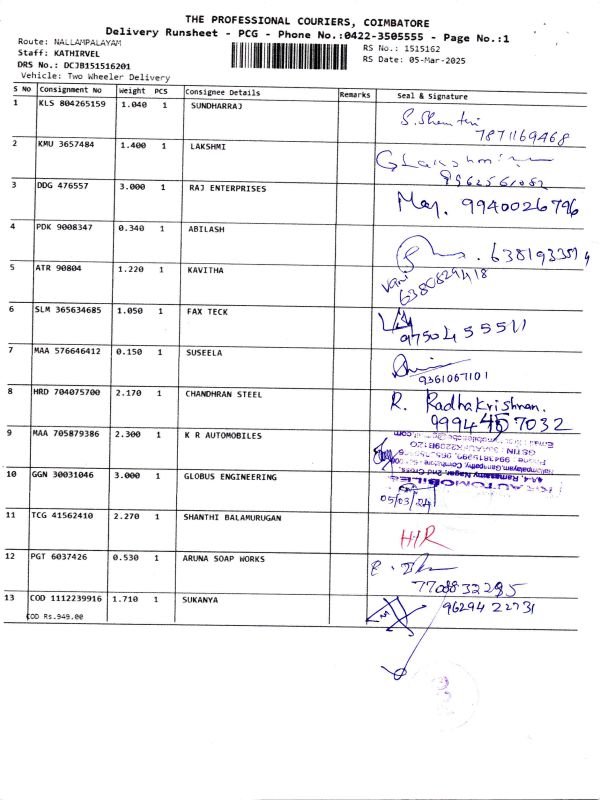 THE PROFESSIONAL COURIERS, COIMBATORE
Delivery Runsheet - PCG - Phone No.:0422-3505555 - Page No.:1
Route: NALLAMPALAYAM
RS No.: 1515162
Staff: KATHIRVEL
RS Date: 05-Mar-2025
DRS No.: DCJB151516201
Vehicle: Two Wheeler Delivery
S No Consignment No Weight PCS Consignee Details Remarks Seal & Signature
1 KLS 804265159 1.040 1 SUNDHARRAJ
7871169468
2 KMU 3657484 1.400 1 LAKSHMI
9962561052
3 DDG 476557 3.000 1 RAJ ENTERPRISES
9940026796
4 PDK 9008347 0.340 1 ABILASH
5 ATR 90804 1.220 1 KAVITHA
Vani
6380829418
6 SLM 365634685 1.050 1 FAX TECK
9750455511
7 MAA 576646412 0.150 1 SUSEELA
9361067101
8 HRD 704075700 2.170 1 CHANDHRAN STEEL R. Radhakrishnan.
9994457032
9 MAA 705879386 2.300 1 K R AUTOMOBILES
10 GGN 30031046 3.000 1 GLOBUS ENGINEERING
K.R AUTOMOBILES
05/03/24
11 TCG 41562410 2.270 1 SHANTHI BALAMURUGAN
H/R
12 PGT 6037426 0.530 1 ARUNA SOAP WORKS
7708832295
13 COD 1112239916 1.710 1 SUKANYA 96294 22731
COD Rs.949.00